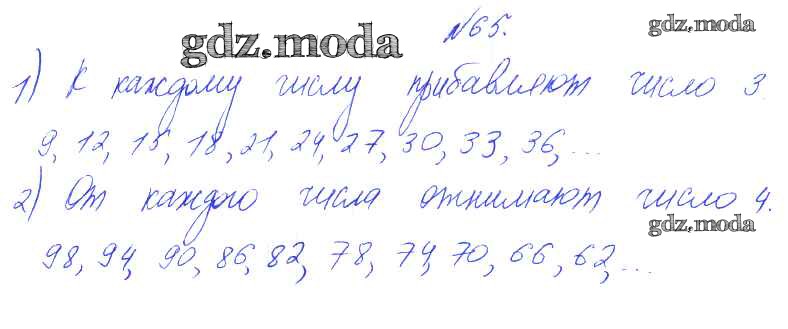 №65.
gdz.moda
gdz.moda
1) К каждому числу прибавляют число 3.
9, 12, 15, 18, 21, 24, 27, 30, 33, 36, ...
2) От каждого числа отнимают число 4.
gdz.moda
98, 94, 90, 86, 82, 78, 74, 70, 66, 62, ...